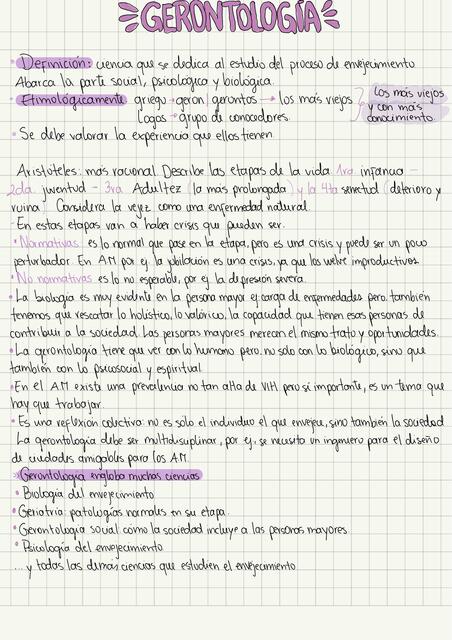 GERONTOLOGÍA
• Definición: ciencia que se dedica al estudio del proceso de envejecimiento
Abarca la parte social, psicologica y biológica.
• Etimológicamente griego → geron | gerontos → los más viejos
Logos → grupo de conocedores.
los más viejos
y con más
conocimiento
• Se debe valorar la experiencia que ellos tienen.
Aristóteles: más racional. Describe las etapas de la vida 1ra infancia -
2da juventud - 3ra Adultez (la más prolongada) y la 4ta senectud (deterioro y
ruina). Considera la vejez como una enfermedad natural.
- En estas etapas van a haber crisis que pueden ser:
• Normativas: es lo normal que pase en la etapa, pero es una crisis y puede ser un poco
perturbador. En AM por ej. la jubilación es una crisis, ya que los vuelve improductivos.
• No normativas: es lo no esperable, por ej. la depresión severa.
• La biología es muy evidente en la persona mayor ej. carga de enfermedades pero también
tenemos que rescatar lo holístico, lo valórico, la capacidad que tienen esas personas de
contribuir a la sociedad. Las personas mayores merecen el mismo trato y oportunidades.
• La gerontología tiene que ver con lo humano pero no solo con lo biológico, sino que
también con lo psicosocial y espiritual.
• En el AM existe una prevalencia no tan alta de VIH pero sí importante, es un tema que
hay que trabajar.
• Es una reflexión colectiva: no es sólo el individuo el que envejece, sino también la sociedad
La gerontología debe ser multidisciplinar, por ej. se necesita un ingeniero para el diseño
de ciudades amigables para los AM.
Gerontología engloba muchas ciencias
• Biología del envejecimiento
• Geriatría: patologías normales en su etapa.
• Gerontología social: cómo la sociedad incluye a las personas mayores
• Psicología del envejecimiento
... y todas las demás ciencias que estudien el envejecimiento